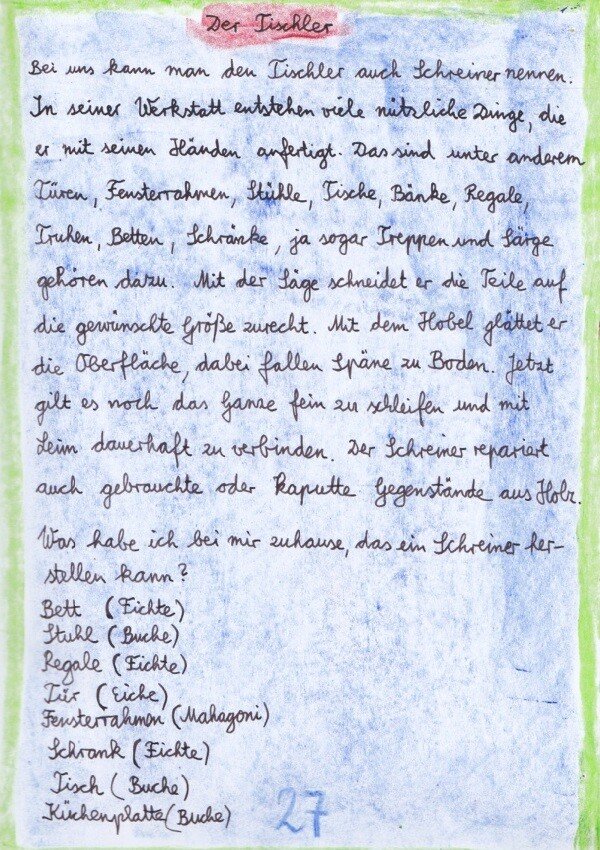 Der Tischler
Bei uns kann man den Tischler auch Schreiner nennen.
In seiner Werkstatt entstehen viele nützliche Dinge, die
er mit seinen Händen anfertigt. Das sind unter anderem
Türen, Fensterrahmen, Stühle, Tische, Bänke, Regale,
Truhen, Betten, Schränke, ja sogar Treppen und Särge
gehören dazu. Mit der Säge schneidet er die Teile auf
die gewünschte Größe zurecht. Mit dem Hobel glättet er
die Oberfläche, dabei fallen Späne zu Boden. Jetzt
gilt es noch das Ganze fein zu schleifen und mit
Leim dauerhaft zu verbinden. Der Schreiner repariert
auch gebrauchte oder kaputte Gegenstände aus Holz.
Was habe ich bei mir zuhause, das ein Schreiner her-
stellen kann?
Bett (Fichte)
Stuhl (Buche)
Regale (Fichte)
Tür (Eiche)
Fensterrahmen (Mahagoni)
Schrank (Fichte)
Tisch (Buche)
Küchenplatte (Buche)
27